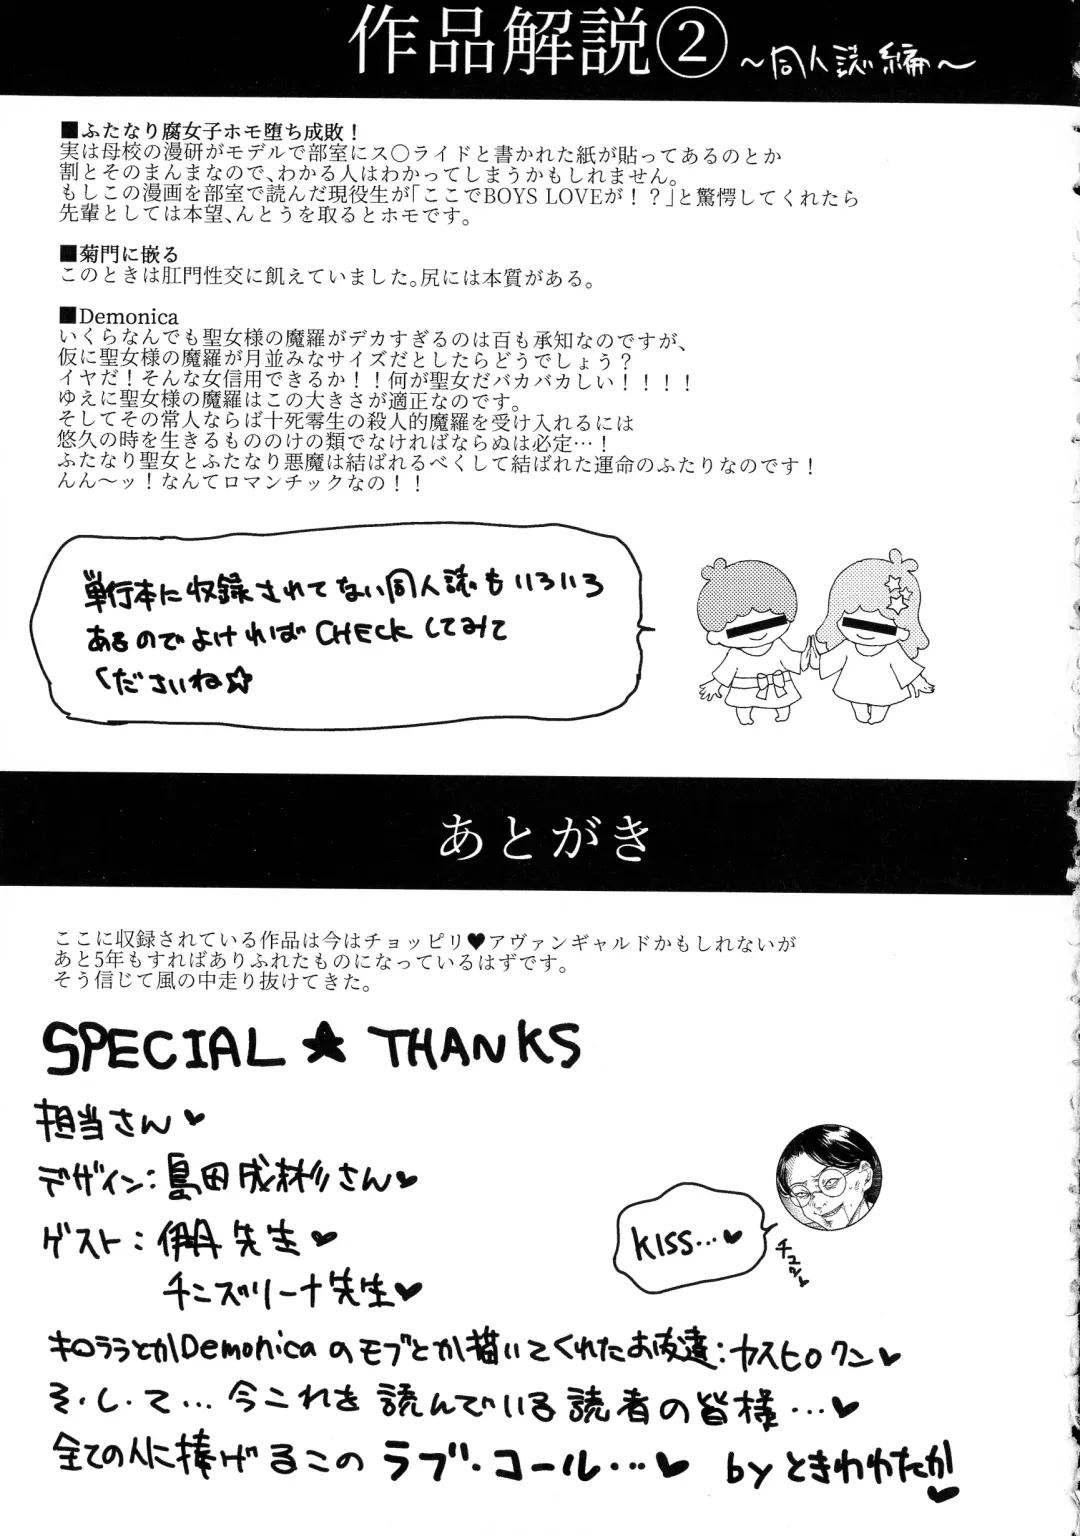 作品解説② ～同人誌編～
■ふたなり腐女子ホモ堕ち成敗！
実は母校の漫研がモデルで部室にス〇ライドと書かれた紙が貼ってあるのとか
割とそのまんまなので、わかる人はわかってしまうかもしれません。
もしこの漫画を部室で読んだ現役生が「ここでBOYS LOVEが！？」と驚愕してくれたら
先輩としては本望、んとうを取るとホモです。
■菊門に嵌る
このときは肛門性交に飢えていました。尻には本質がある。
■Demonica
いくらなんでも聖女様の魔羅がデカすぎるのは百も承知なのですが、
仮に聖女様の魔羅が月並みなサイズだとしたらどうでしょう？
イヤだ！そんな女信用できるか！！何が聖女だバカバカしい！！！！
ゆえに聖女様の魔羅はこの大きさが適正なのです。
そしてその常人ならば十死零生の殺人的魔羅を受け入れるには
悠久の時を生きるもののけの類でなければならぬは必定…！
ふたなり聖女とふたなり悪魔は結ばれるべくして結ばれた運命のふたりなのです！
んん～ッ！なんてロマンチックなの！！
単行本に収録されてない同人誌もいろいろ
あるのでよければCHECKしてみて
くださいね☆
あとがき
ここに収録されている作品は今はチョッピリ♥アヴァンギャルドかもしれないが
あと5年もすればありふれたものになっているはずです。
そう信じて風の中走り抜けてきた。
SPECIAL★THANKS
担当さん♥
デザイン：島田成彬さん♥
ゲスト：伊丹先生♥
チンズリーナ先生♥
kiss…♥
チュッ♥
キロララとかDemonicaのモブとか描いてくれたお友達：ヤスヒロクン♥
そ・し・て…今これを読んでいる読者の皆様…♥
全ての人に捧げるこのラブ・コール…♥ byときわわたか♥